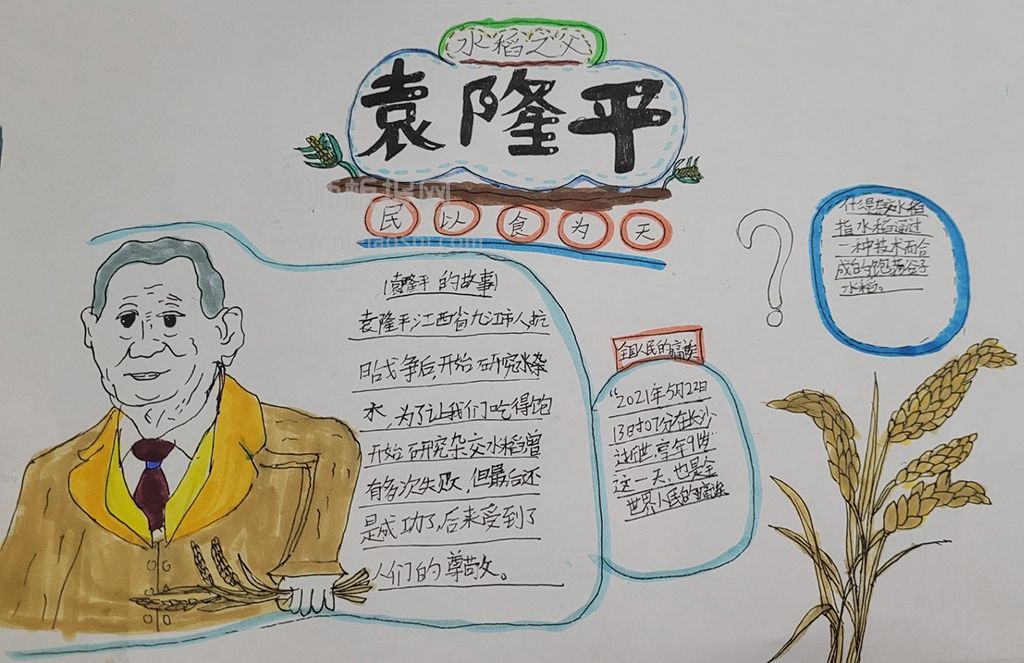 水稻之父
袁隆平
民以食为天
袁隆平的故事
袁隆平江西省九江市人,抗
日战争后,开始研究水杂
水,为了让我们吃得饱
开始研究杂交水稻曾
有多次失败,但最后还
是成功了,后来受到了
人们的尊敬。
全国人民的
“2021年5月22日
13日打7分在长沙
逝世,享年91岁”
这一天,也是全
世界人民的
?
什是杂交水稻
指水稻通过
一种技术而合
成的饱满谷子
水稻。